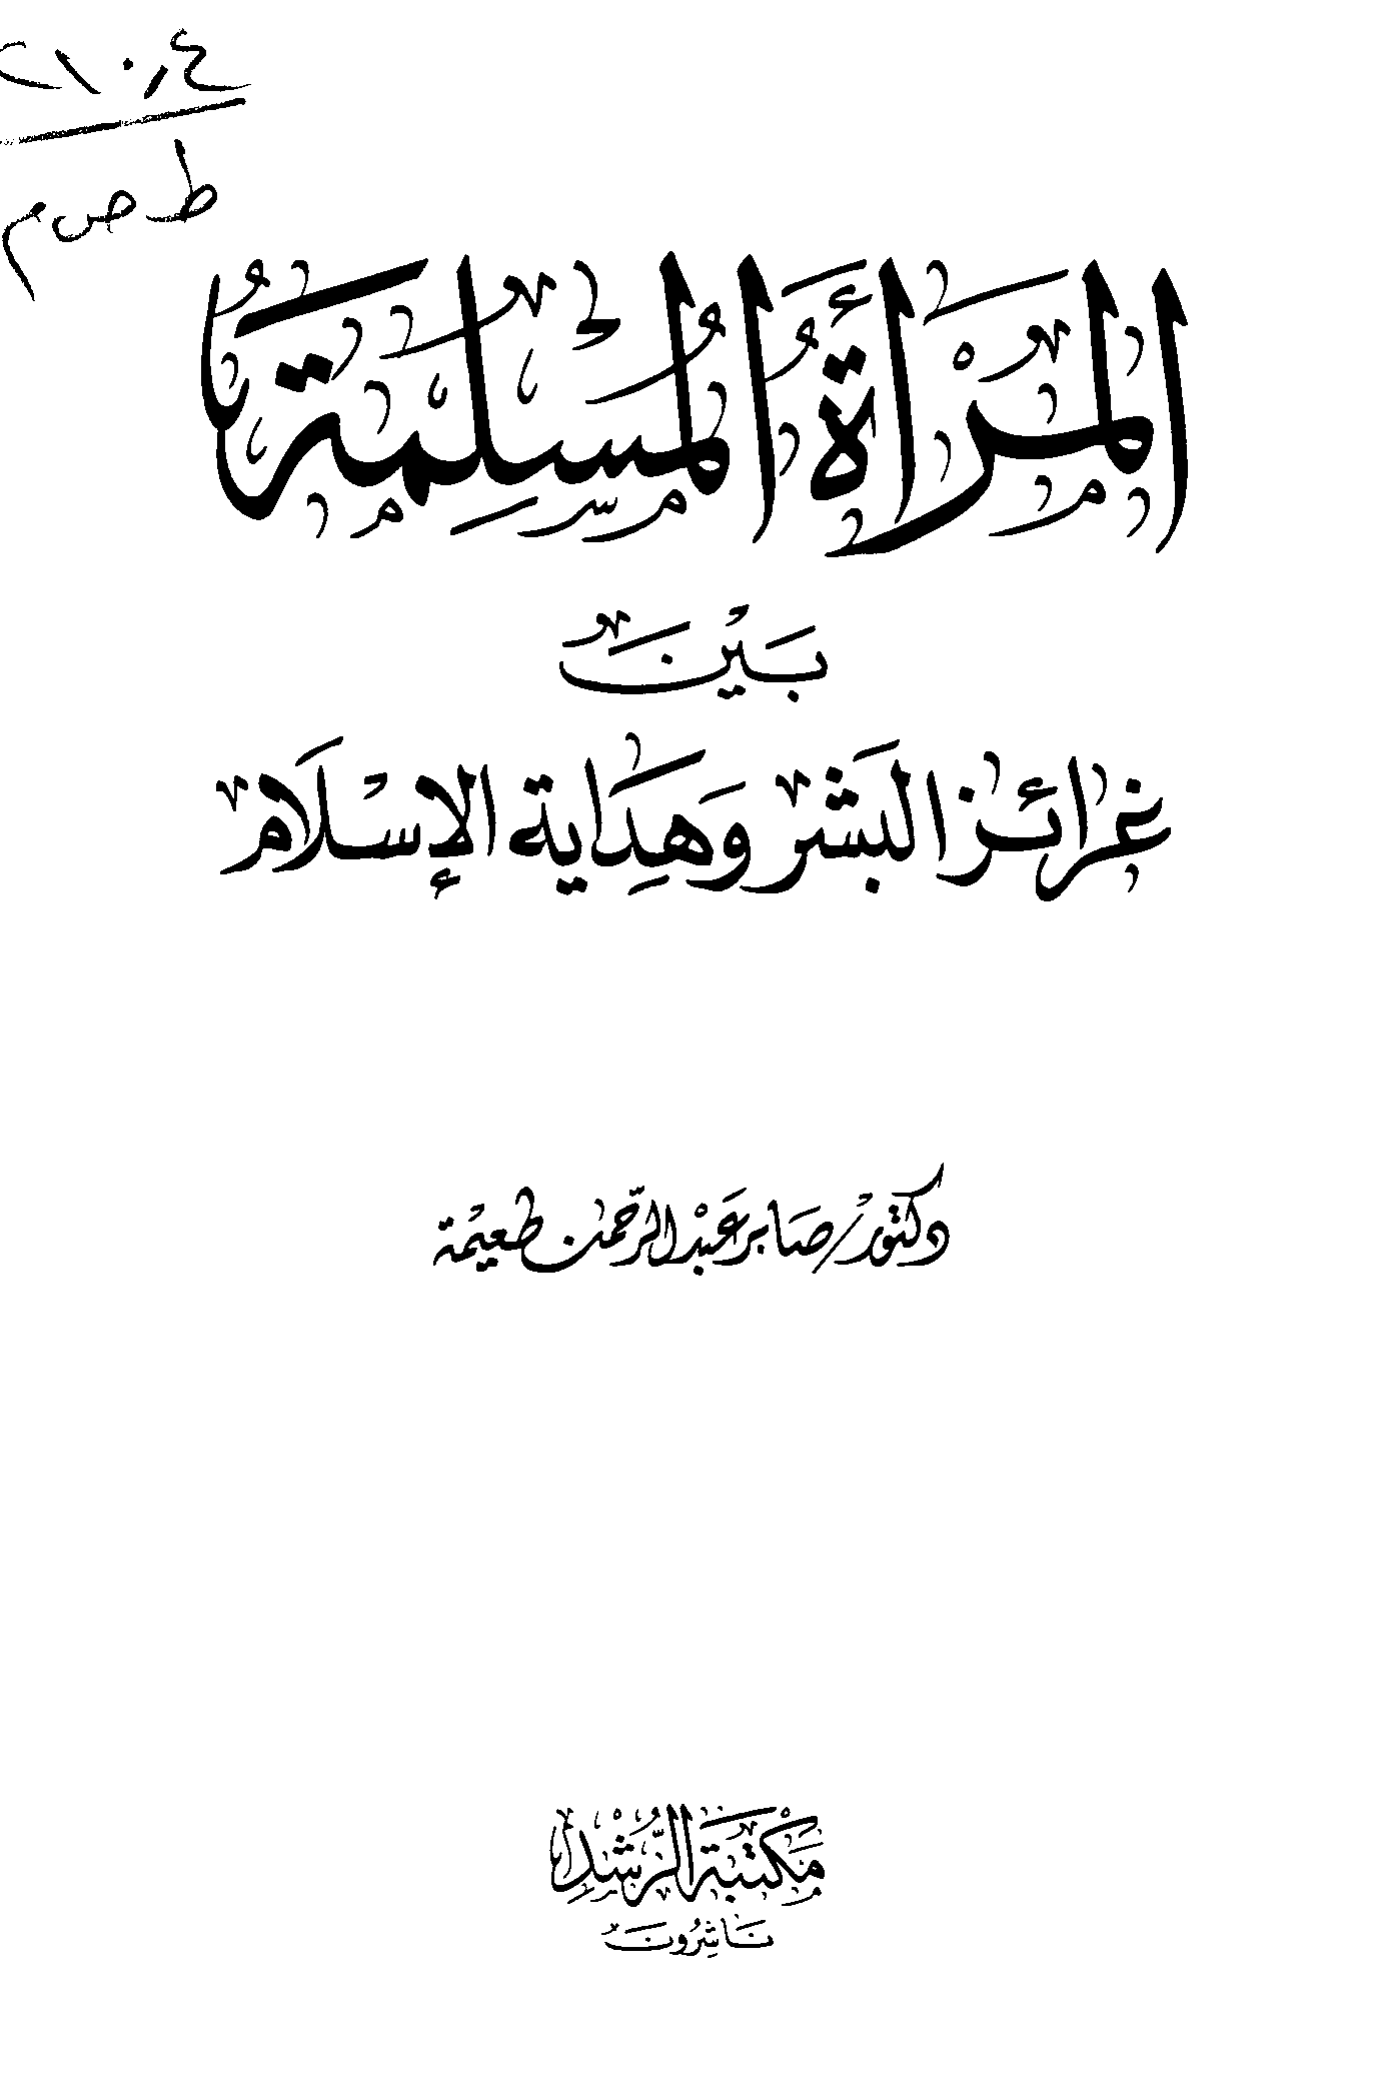 ٢١٠,٤
ط ص م
المرأة المسلمة
بين
غرائز البشر وهداية الإسلام
دكتور/ صابر عبد الرحمن طعيمة
مكتبة الرشد
ناشرون